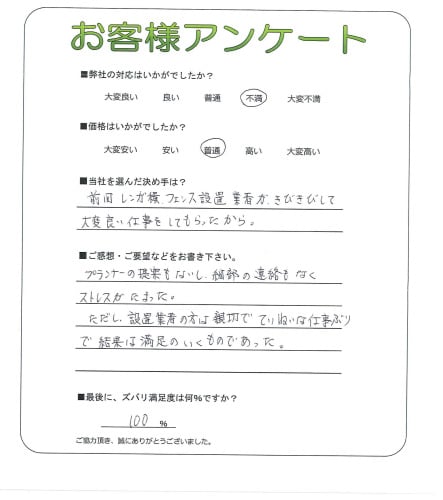 お客様アンケート
■弊社の対応はいかがでしたか?
大変良い 良い 普通 不満 大変不満
■価格はいかがでしたか?
大変安い 安い 普通 高い 大変高い
■当社を選んだ決め手は?
前回 レンガ横、フェンス設置 業者が、きびきびして
大変良い仕事をしてもらったから。
■ご感想・ご要望などをお書き下さい。
プランナーの提案もないし、細部の連絡もなく
ストレスがたまった。
ただし、設置業者の方は親切で ていねいな仕事ぶり
で 結果は満足のいくものであった。
■最後に、ズバリ満足度は何%ですか?
100 %
ご協力頂き、誠にありがとうございました。